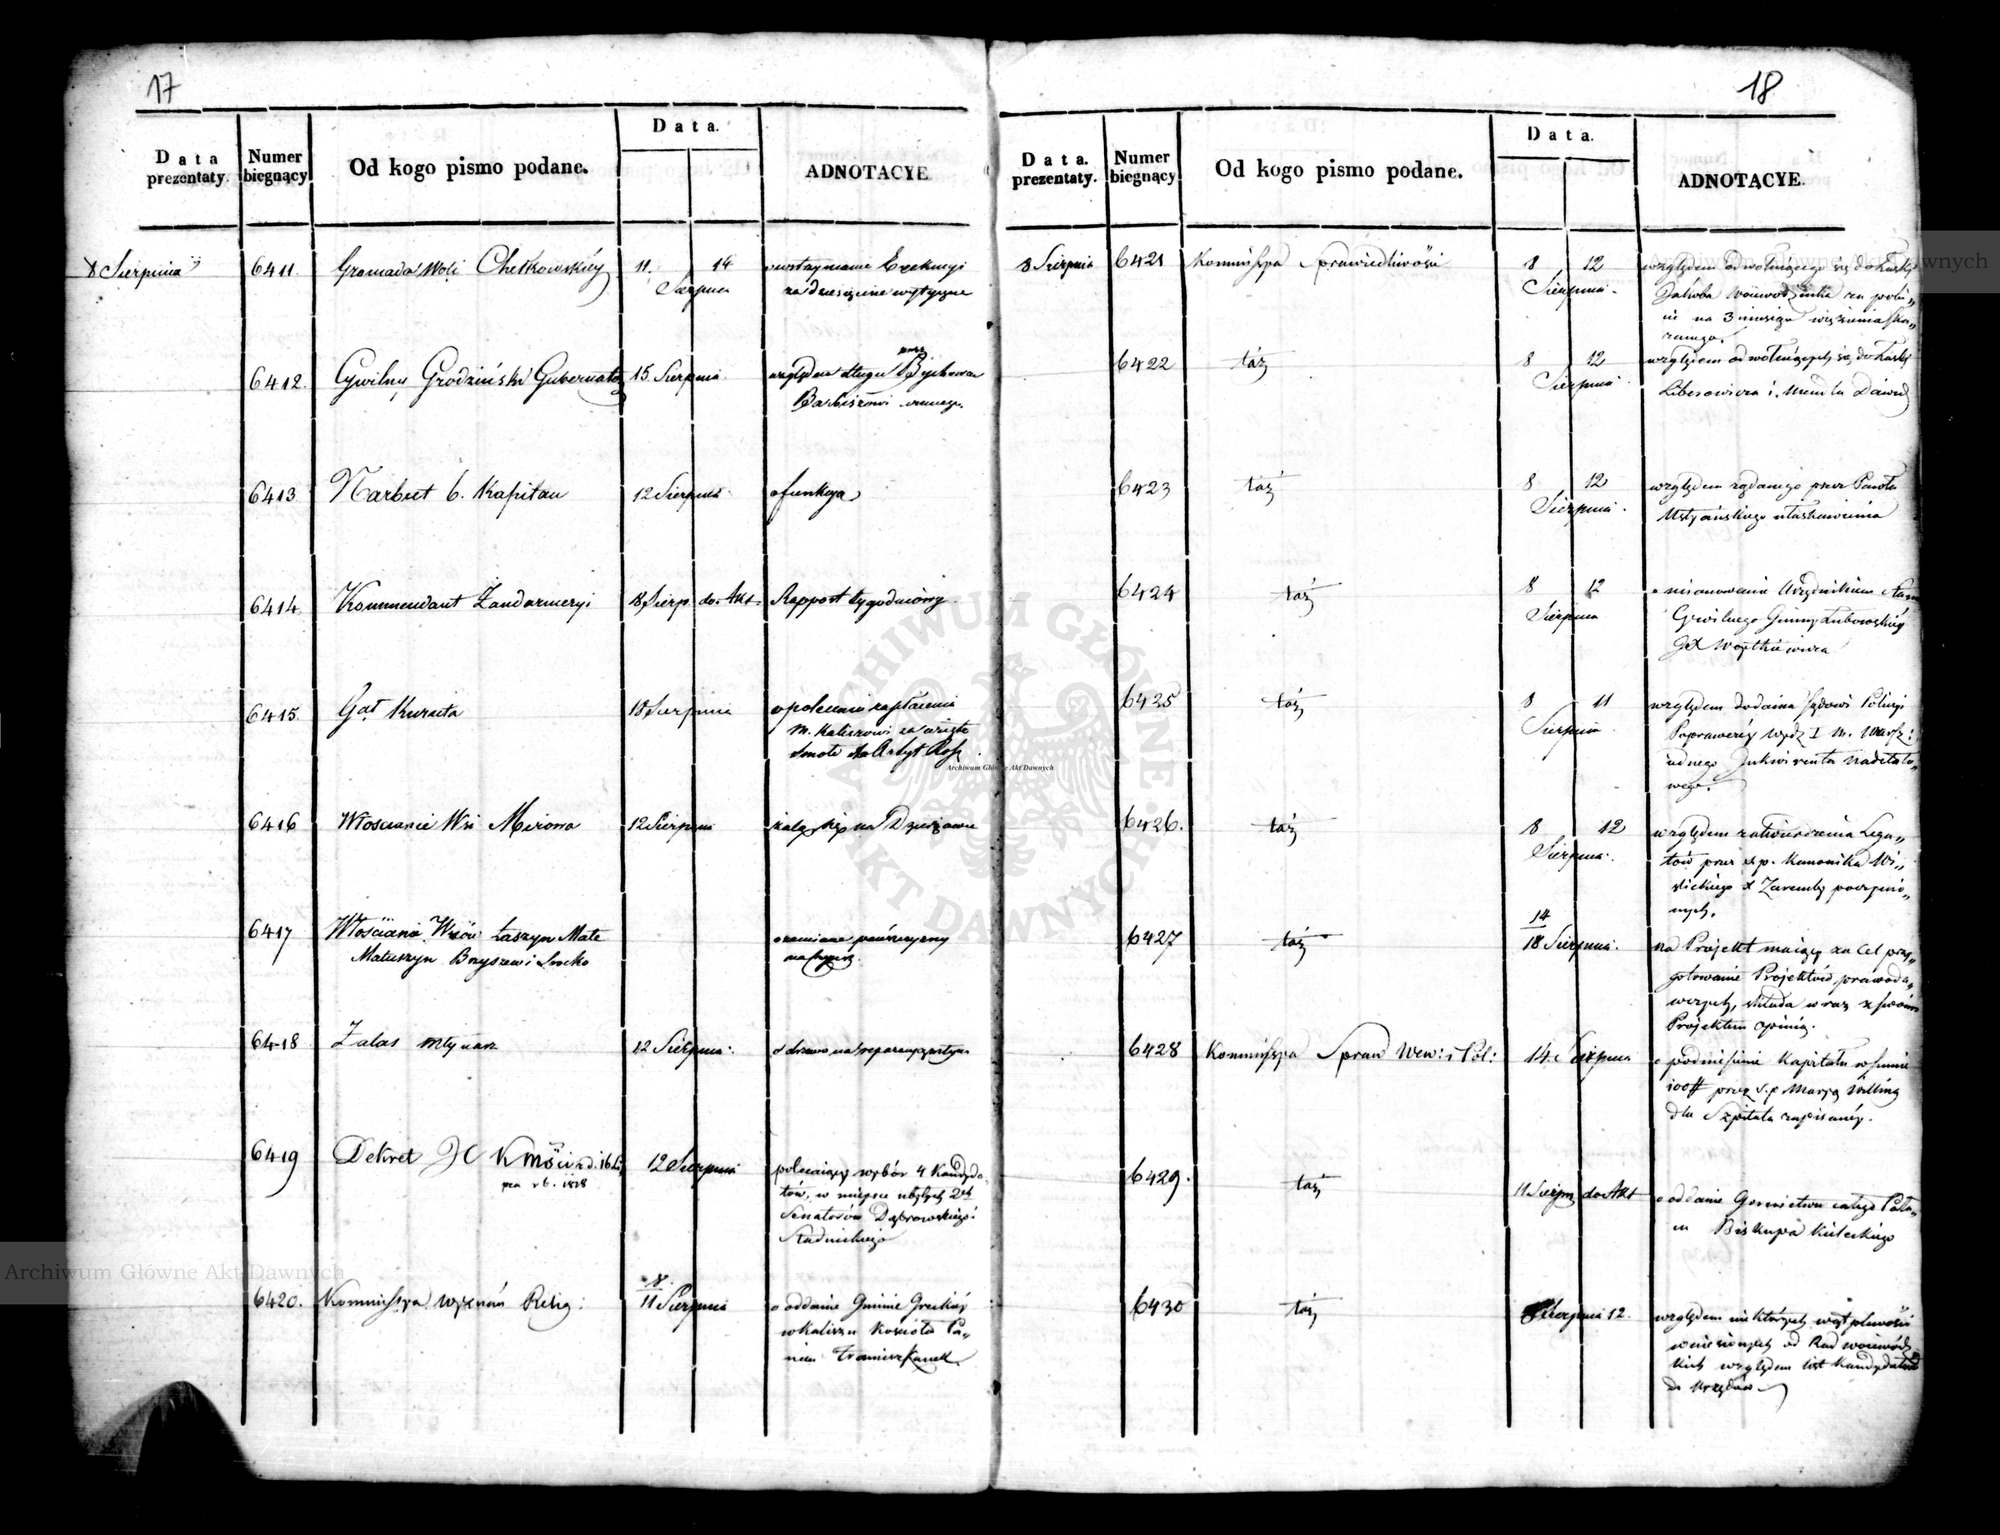 17
Data prezentaty.
Numer biegnący
Od kogo pismo podane.
Data.
ADNOTACYE
8 Sierpnia
6411
Gromada Woli Chełkowskiéy
11. 14
Sierpnia
wstrzymanie Exekucyi
za dziesięcine wytyczne
6412
Cywilny Grodziński Gubernator
15 Sierpnia
względem długu przez Bychowa
6413
Narbut b. Kapitan
12 Sierpnia
o funkcyą
6414
Kommendant Żandarmeryi
18 Sierp. do Akt.
Rapport tygodniowy
6415
Gąt Kurata
18 Sierpnia
o polecenie zapłacenia
m. Kaliszowi za wzięte
6416
Włościanie Wsi Mirowa
12 Sierpnia
żalą się na Dzierżawcę
6417
Włościanie Wsiów Łaszyn Małe
Matuszyn Boryszew i Srocko
6418
Zalas młynarz
12 Sierpnia
o drzewo na reperacyą młyna
6419
Dekret JC Kmości z d. 16 Lis
pca r b. 1818
12 Sierpnia
polecaiący wybór 4 Kandyda-
tów, w mieysce ubyłych 2ch
Senatorów Dąbrowskiego i
Stadnickiego
6420.
Kommissya Wyznań Relig:
8
11 Sierpnia
o oddanie Gminie Greckiéy
w Kaliszu Kościoła Pa„
nien Franciszkanek
18
Data. prezentaty.
Numer biegnący
Od kogo pismo podane.
Data.
ADNOTACYE.
8 Sierpnia
6421
Kommissya Sprawiedliwości
8 12
Sierpnia
względem odwołuiącego się do Łaski
Jakóba
na 3 miesiące więzienia ska„
zanego.
6422
táż
8 12
Sierpnia
względem odwołuiących się do Łaski
Liberowicza i Mendla Dawid
6423
táż
8 12
Sierpnia
względem żądanego przez Pawła
Ustyańskiego ułaskawienia
6424
táż
8 12
Sierpnia
o mianowanie Urzędnikiem Stanu
Cywilnego Gminy Lubowskiéy
JX Woytkiewicza
6425
táż
8 11
Sierpnia
względem dodania Sądowi Policyi
Poprawczéy Wydz I m. Warsz:
iednego Inkwirenta nadetato„
wego.
6426.
táż
8 12
Sierpnia.
względem zatwierdzenia Lega„
tów przez ś.p. Kanonika Wi„
ślickiego X Zarembę poczynio„
nych.
6427
táż
14
18 Sierpnia.
na Projekt maiący za cel przy„
gotowanie Projektów prawoda„
wczych, składa wraz z swoim
Projektem opinią.
6428
Kommissya Spraw Wew: i Pol:
14. Sierpnia
o podniesienie Kapitału w summie
100# przez ś.p Maryą
dla Szpitala zapisanéy.
6429.
táż
11 Sierpnia do Akt
o oddanie Gornictwu całego Pała„
cu Biskupa Kieleckiego
6430
táż
Sierpnia 12.
względem niektórych wątpliwości
wniesionych od Rad woiewódz
kich względem list Kandydatów
do Urzędów
Archiwum Główne Akt Dawnych
ARCHIWUM GŁÓWNE AKT DAWNYCH
Archiwum Główne Akt Dawnych
Archiwum Główne Akt Dawnych